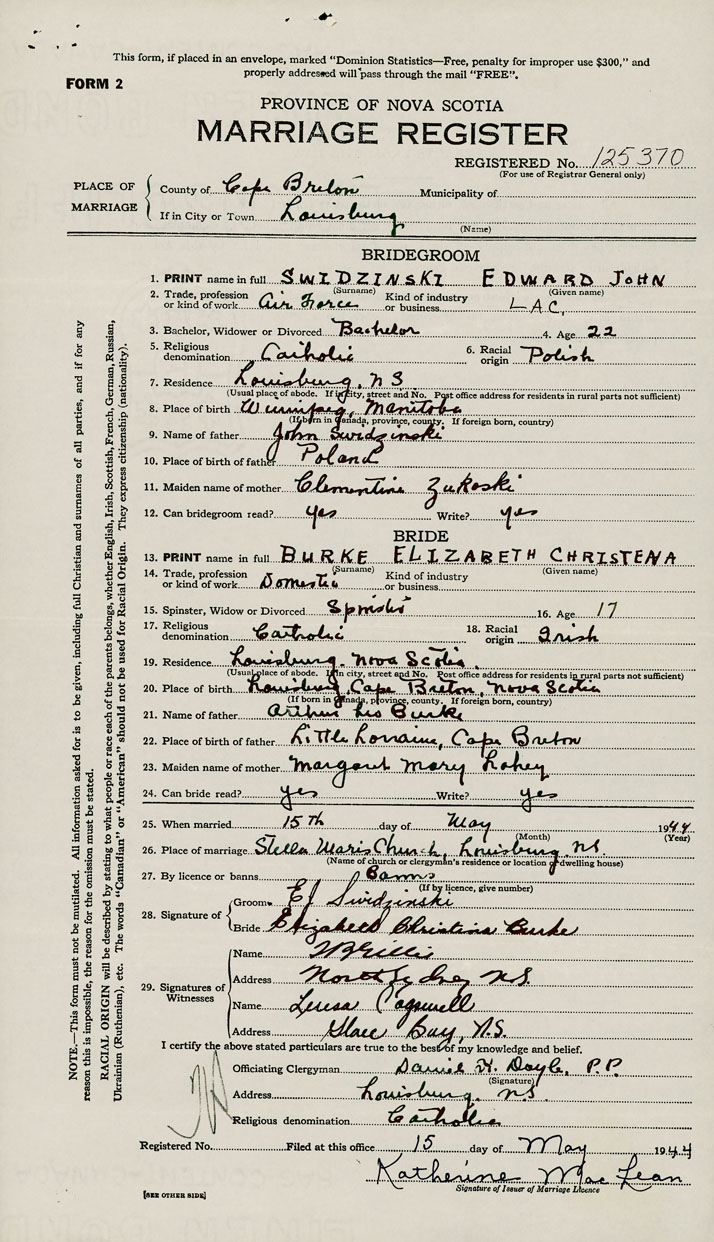 This form, if placed in an envelope, marked "Dominion Statistics—Free, penalty for improper use $300," and
properly addressed will pass through the mail "FREE".
FORM 2
PROVINCE OF NOVA SCOTIA
MARRIAGE REGISTER
REGISTERED No. 125370
(For use of Registrar General only)
PLACE OF MARRIAGE
County of Cape Breton Municipality of
If in City or Town Louisburg
(Name)
BRIDEGROOM
1. PRINT name in full SWIDZINSKI EDWARD JOHN
(Surname) (Given name)
2. Trade, profession or kind of work Air Force Kind of industry or business LAC.
3. Bachelor, Widower or Divorced Bachelor 4. Age 22
5. Religious denomination Catholic 6. Racial origin Polish
7. Residence Louisburg, NS
(Usual place of abode. If in city, street and No. Post office address for residents in rural parts not sufficient)
8. Place of birth Winnipeg, Manitoba
(If born in Canada, province, county. If foreign born, country)
9. Name of father John Swidzinski
10. Place of birth of father Poland
11. Maiden name of mother Clementine Zukoski
12. Can bridegroom read? yes Write? yes
BRIDE
13. PRINT name in full BURKE ELIZABETH CHRISTENA
(Surname) (Given name)
14. Trade, profession or kind of work Domestic Kind of industry or business
15. Spinster, Widow or Divorced Spinster 16. Age 17
17. Religious denomination Catholic 18. Racial origin Irish
19. Residence Louisburg, Nova Scotia
(Usual place of abode. If in city, street and No. Post office address for residents in rural parts not sufficient)
20. Place of birth Louisburg, Cape Breton, Nova Scotia
(If born in Canada, province, county. If foreign born, country)
21. Name of father Arthur Leo Burke
22. Place of birth of father Little Lorraine, Cape Breton
23. Maiden name of mother Margaret Mary Lahey
24. Can bride read? yes Write? yes
25. When married 15th day of May 1944
(Month) (Year)
26. Place of marriage Stella Maris Church, Louisburg, N.S.
(Name of church or clergyman's residence or location of dwelling house)
27. By licence or banns Banns
(If by licence, give number)
28. Signature of
Groom EJ Swidzinski
Bride Elizabeth Christina Burke
29. Signatures of Witnesses
Name Gillis
Address North Sydney N.S.
Name Teresa Cogswell
Address Glace Bay, N.S.
I certify the above stated particulars are true to the best of my knowledge and belief.
Officiating Clergyman Daniel H. Doyle, P.P.
(Signature)
Address Louisburg, N.S.
Religious denomination Catholic
Registered No. Filed at this office 15 day of May 1944
Katherine MacLean
Signature of Issuer of Marriage Licence
[SEE OTHER SIDE]
NOTE.—This form must not be mutilated. All information asked for is to be given, including full Christian and surnames of all parties, and if for any
reason this is impossible, the reason for the omission must be stated.
RACIAL ORIGIN will be described by stating to what people or race each of the parents belongs, whether English, Irish, Scottish, French, German, Russian,
Ukrainian (Ruthenian), etc. The words "Canadian" or "American" should not be used for Racial Origin. They express citizenship (nationality).